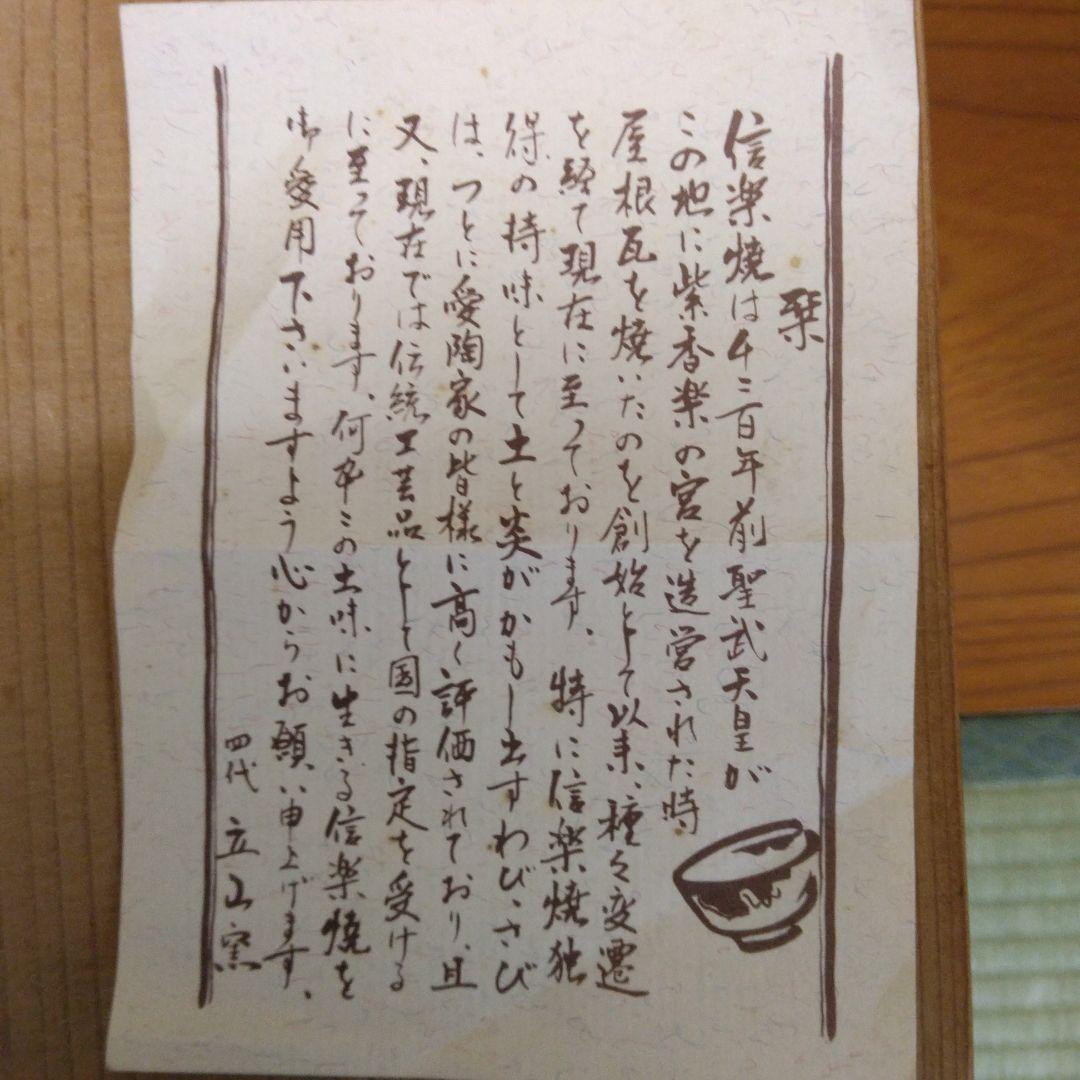 栞
信楽焼は千二百年前聖武天皇が
この地に紫香楽の宮を造営された時
屋根瓦を焼いたのを創始として以来、種々変遷
を経て現在に至っております、特に信楽焼独
得の持味として土と炎がかもし出すわび、さび
は、つとに愛陶家の皆様に高く評価されており、且
又、現在では伝統工芸品として国の指定を受ける
に至っております、何卒この土味に生きる信楽焼を
御愛用下さいますよう心からお願い申上げます、
四代 立山窯